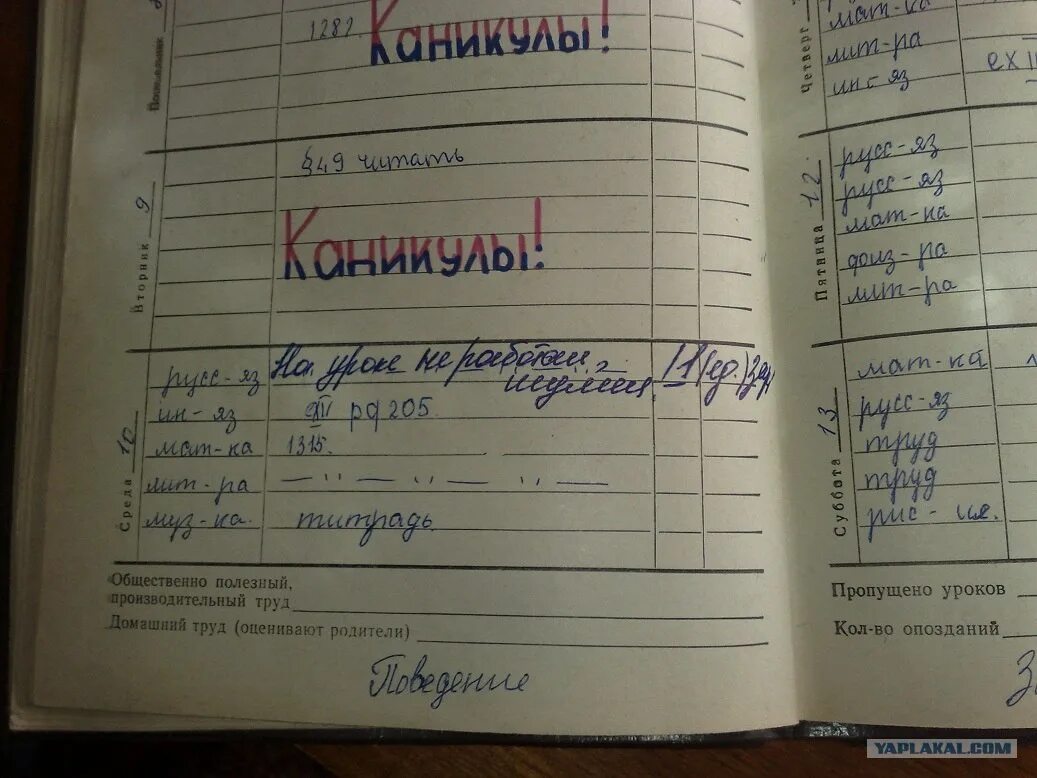 Понедельник
1282.
Каникулы!
Вторник 9
§49 читать
Каникулы!
Среда 10
русс-яз На уроке не работал,
шумел
ин-яз XIV рф 205.
мат-ка 1315.
лит-ра — " — " — " —
муз-ка. титрадь.
Общественно полезный,
производительный труд
Домашний труд (оценивают родители)
Поведение
Четверг
мат-ка
лит-ра
ин-яз ex
Пятница 12
русс-яз
русс-яз
мат-ка
физ-ра
лит-ра
Суббота 13
мат-ка
русс-яз
труд
труд
рис-ие.
Пропущено уроков
Кол-во опозданий
YAPLAKAL.COM